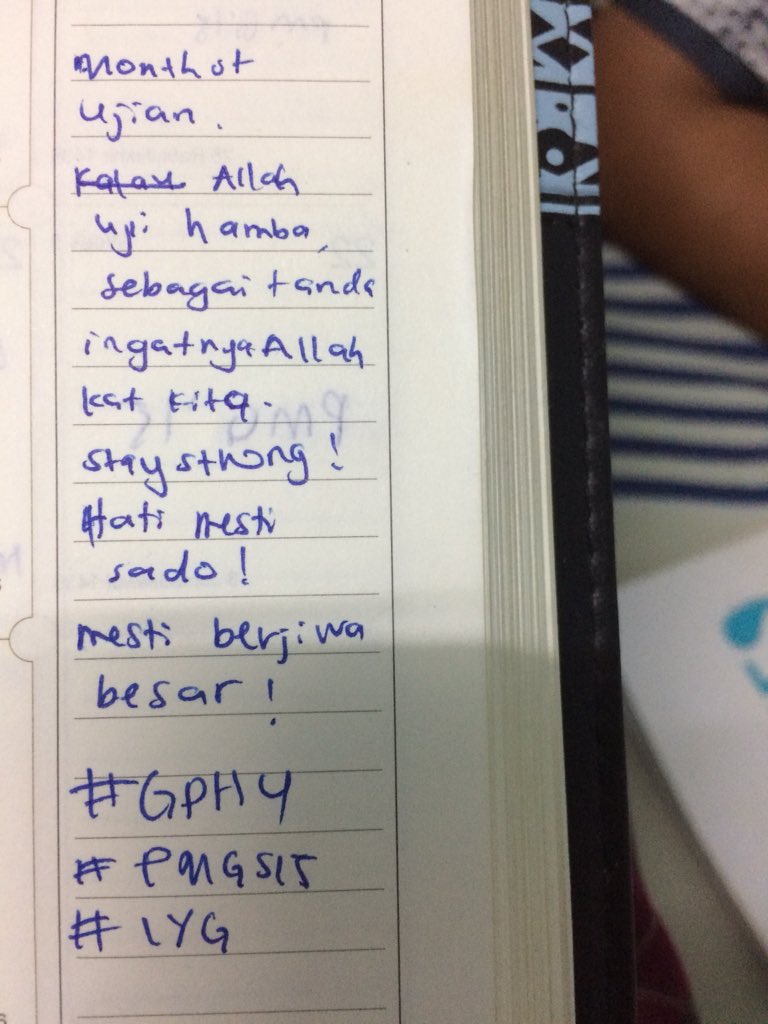 Month of
Ujian.
Kalau Allah
uji hamba,
sebagai tanda
ingatnya Allah
kat kita.
stay strong!
Hati mesti
sado!
mesti berjiwa
besar!
#GPH4
#PMGS15
#1YG